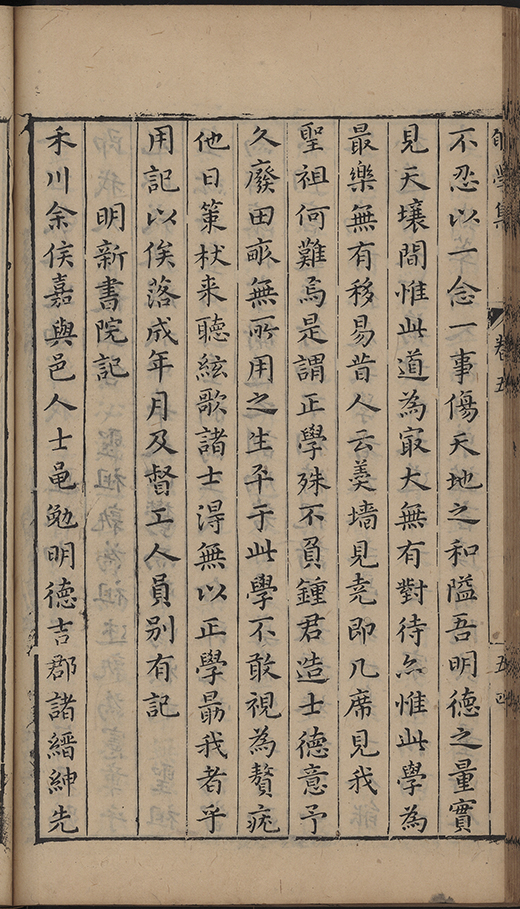 學集
卷五
五四
不忍以一念一事傷天地之和隘吾明德之量實
見天壤間惟此道為㝡大無有對待亦惟此學為
最樂無有移易昔人云羹墻見堯即几席見我
聖祖何難焉是謂正學殊不負鍾君造士德意予
久廢田畝無所用之生平于此學不敢視為贅疣
他日策杖来聽絃歌諸士得無以正學勗我者乎
用記以俟落成年月及督工人員别有記
明新書院記
禾川余侯嘉與邑人士黽勉明德吉郡諸縉紳先